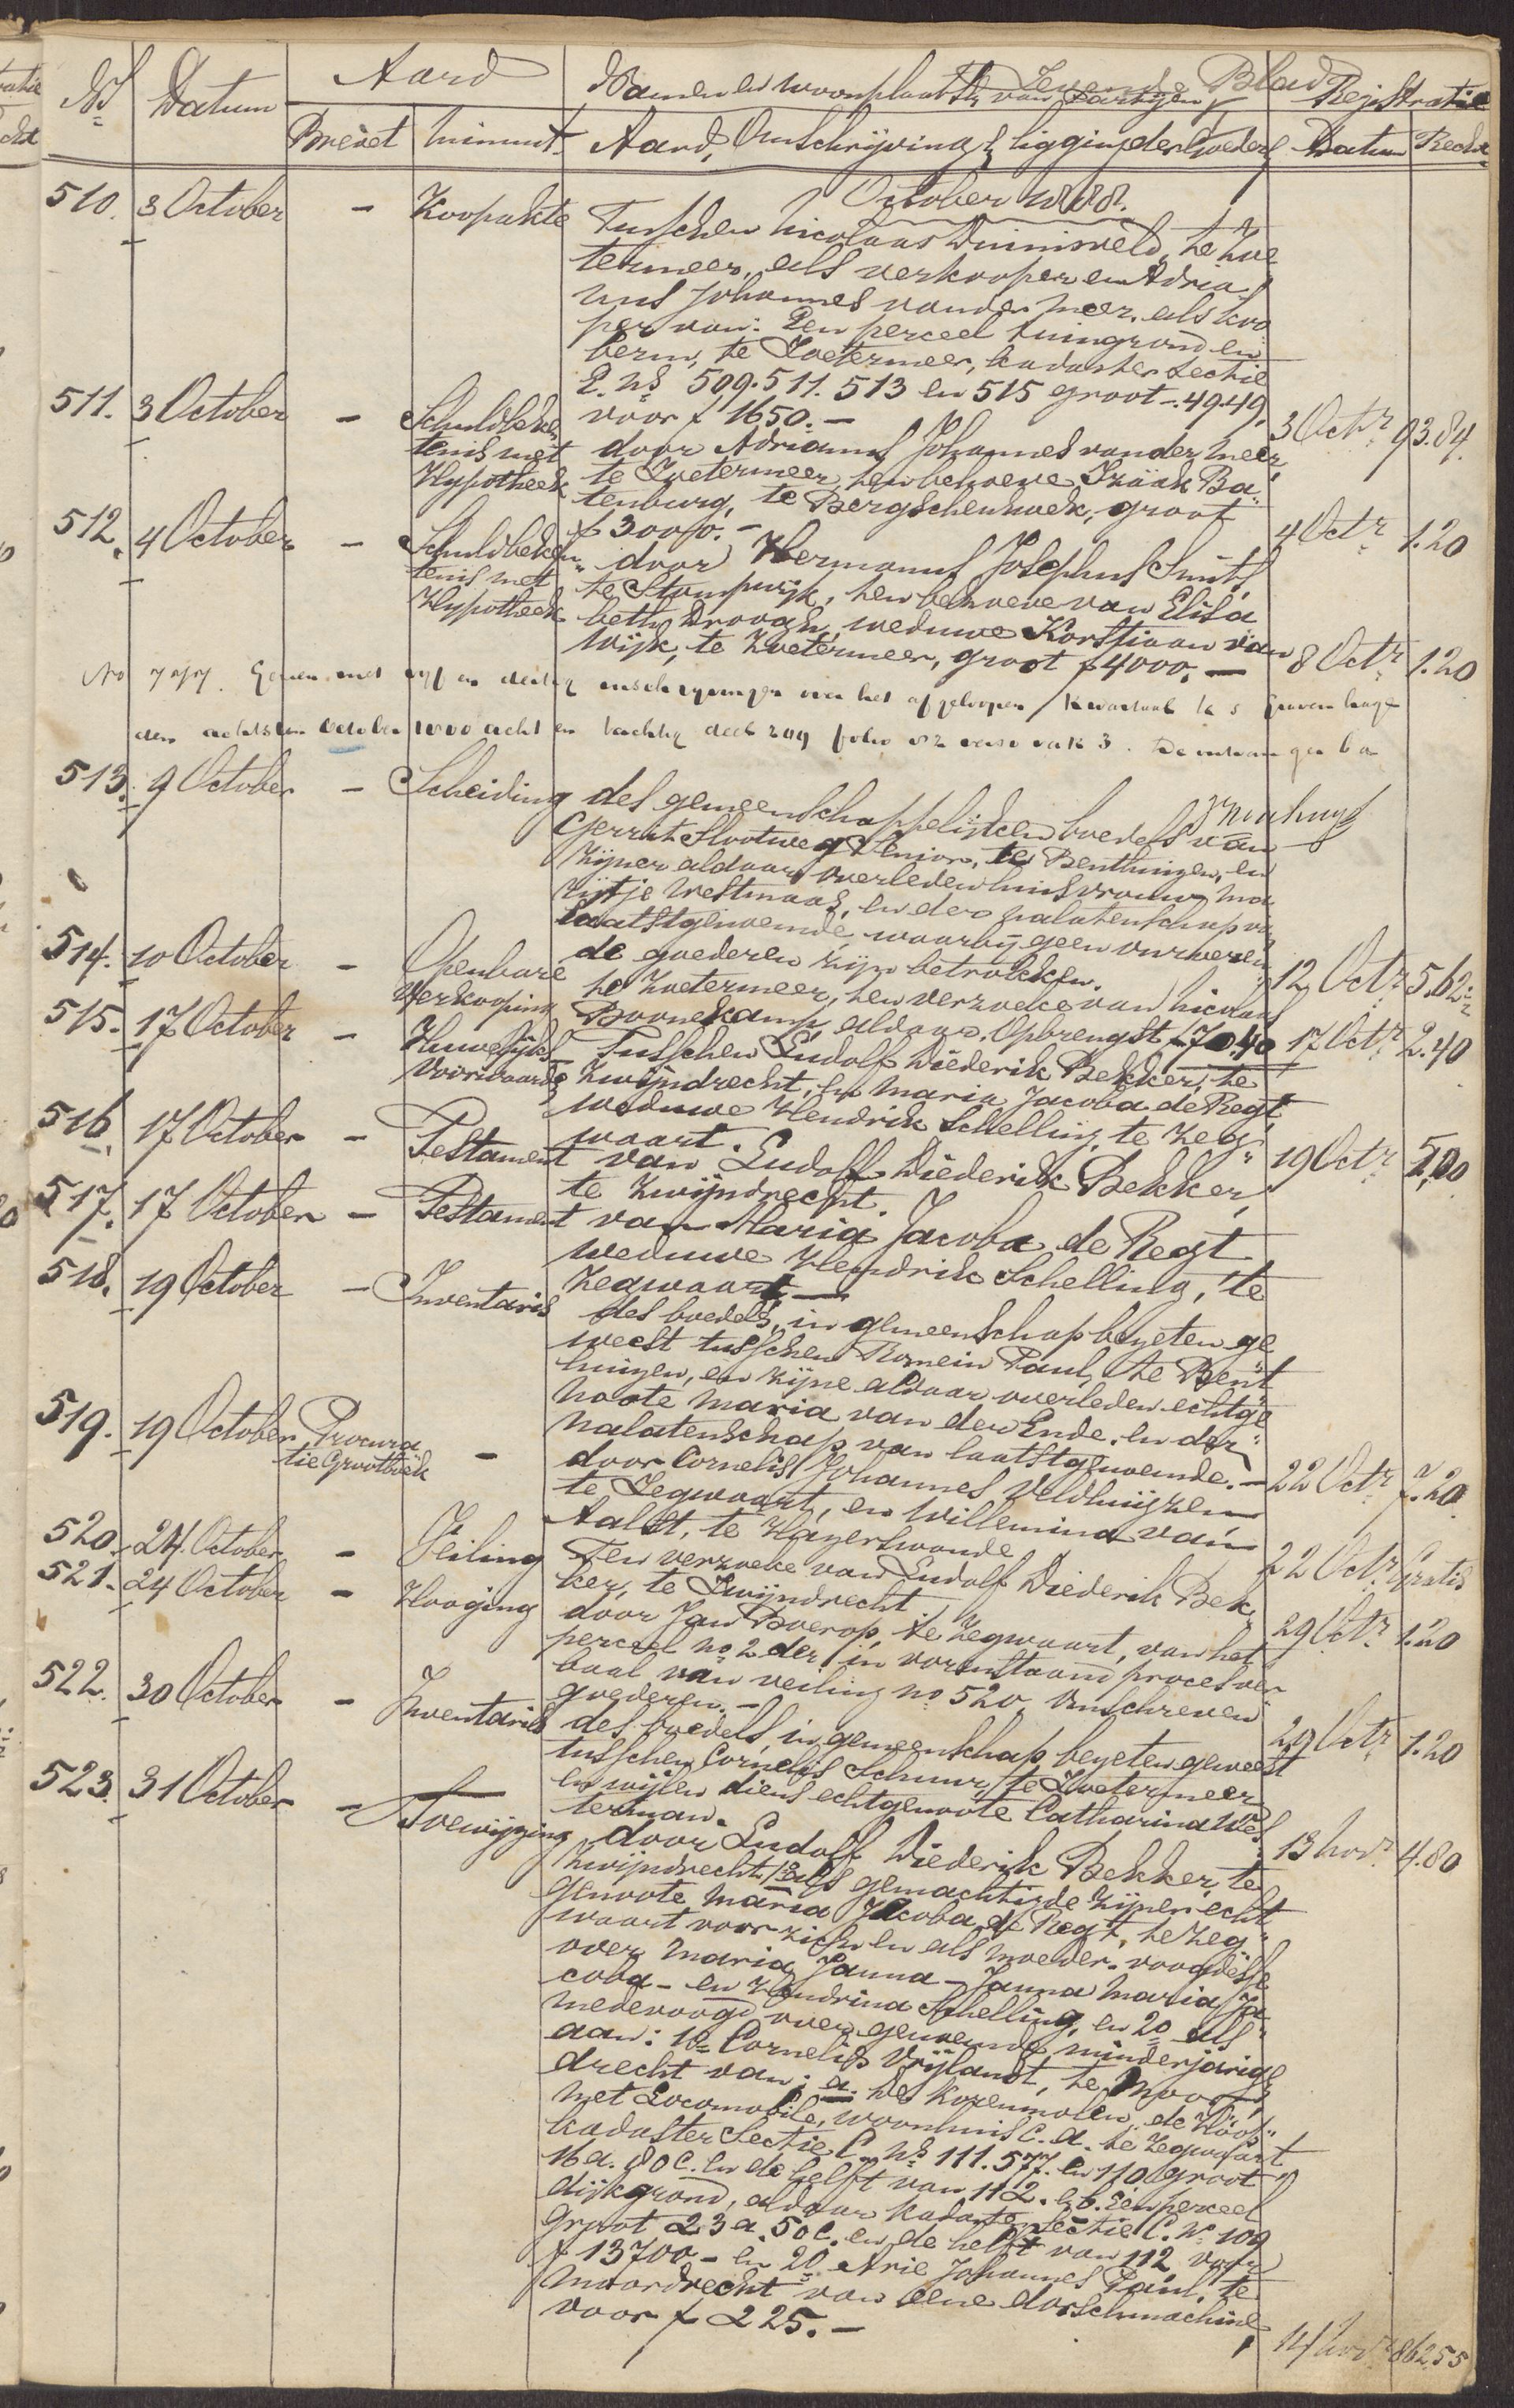 Zevende Blad
No Datum Aard Namen en woonplaatsen van Partijen Registratie
Brevet Minuut Aard, Omschrijving & ligging der Goederen Datum Recht
October 1888.
510. 3 October - Koopakte Tusschen Nicolaas Duinisveld, te Zoe
termeer, als verkooper en Adria
nus Johannes van der Meer, als koo
per van: Een perceel tuingrond en
berm, te Zoetermeer, kadaster sectie
E. Ns 509. 511. 513 en 515 groot -.49.49,
voor f 1650.- 3 Octr 93.84.
511. 3 October - Schuldbeken door Adrianus Johannes van der Meer
tenis met te Zoetermeer, ten behoeve Izaäk Ba-
Hypotheek tenburg, te Bergschenhoek, groot
f 3000.- 4 Octr 1.20
512. 4 October - Schuldbeken door Hermanus Josephus Smits
tenis met te Stompwijk, ten behoeve van Elisa
Hypotheek beth Droogh, weduwe Korstiaan van
Wijk, te Zoetermeer, groot f 4000.- 8 Octr 1.20
No Gezien met vyf en dertig inschryvingen over het afgeloopen kwartaal te s Gravenhage
den achtsten October 1800 acht en tachtig deel 209 folio 82 verso vak 3. De ontvanger b a
513. 9 October - Scheiding des gemeenschappelijken boedels van
Gerrit Slootweg Senior, te Benthuizen, en
zijner aldaar overleden huisvrouw Ma
rijtje Westmaas, en der nalatenschap van
laatstgenoemde, waarbij geen onroeren
de goederen zijn betrokken. 12 Octr 5.62
514. 10 October - Openbare te Zoetermeer, ten verzoeke van Nicolaas
Verkooping Boonekamp, aldaar. Opbrengst f 70.40 17 Octr 2.40
515. 17 October - Huwelijks Tusschen Ludolf Diederik Bekker, te
Voorwaarde Zwijndrecht, en Maria Jacoba de Regt
weduwe Hendrik Schelling, te Zeg-
waart. 19 Octr 5,00
516. 17 October - Testament van Ludolf Diederik Bekker,
te Zwijndrecht.
517. 17 October - Testament van Maria Jacoba de Regt
weduwe Hendrik Schelling, te
Zegwaart.
518. 19 October - Inventaris des boedels, in gemeenschap bezeten ge
weest tusschen Romein Paul, te Bent
huizen, en zijne aldaar overleden echtge
noote Maria van den Ende, en der
nalatenschap van laatstgenoemde. - 22 Octr 7.20
519. 19 October Procura - door Cornelis Johannes Veldhuijzen
tie Grootboek te Zegwaart, en Willemina van
Aalst, te Hazerswoude 22 Octr Gratis
520. 24 October - Veiling Ten verzoeke van Ludolf Diederik Bek
ker, te Zwijndrecht 29 Octr 1.20
521. 24 October - Hooging door Jan Boerop, te Zegwaart, van het
perceel no 2 der in vorenstaand proces ver
baal van veiling no 520, omschreven
goederen. - 29 Octr 1.20
522. 30 October - Inventaris des boedels, in gemeenschap bezeten geweest
tusschen Cornelis Schuur, te Zoetermeer
en wijlen diens echtgenoote Catharina Wes
terman. 13 Novr 4.80
523. 31 October - Toewijzing door Ludolf Diederik Bekker, te
Zwijndrecht, 1o als gemachtigde zijner echt
genoote Maria Jacoba de Regt, te Zeg-
waart voor zich en als moeder-voogdesse
over Maria Janna - Janna Maria Ja
coba - en Hendrina Schelling, en 2o als
medevoogd over genoemde minderjarige
aan: 1o Cornelis Vrijlandt, te Moor
drecht van: a. De korenmolen de Hoop
met Locomobile, woonhuis c.a. te Zegwaart
kadaster Sectie C. Ns 111. 577. en 110 groot
16 a. 80 c. en de helft van 112. en b. Een perceel
dijkgrond, aldaar kadaster sectie C. No 109
groot 23 a. 50 c. en de helft van 112 voor
f 13700 - en 2o Arie Johannes Paul, te
Moordrecht van eene dorschmachine
voor f 225.- 14 Novr 862.55